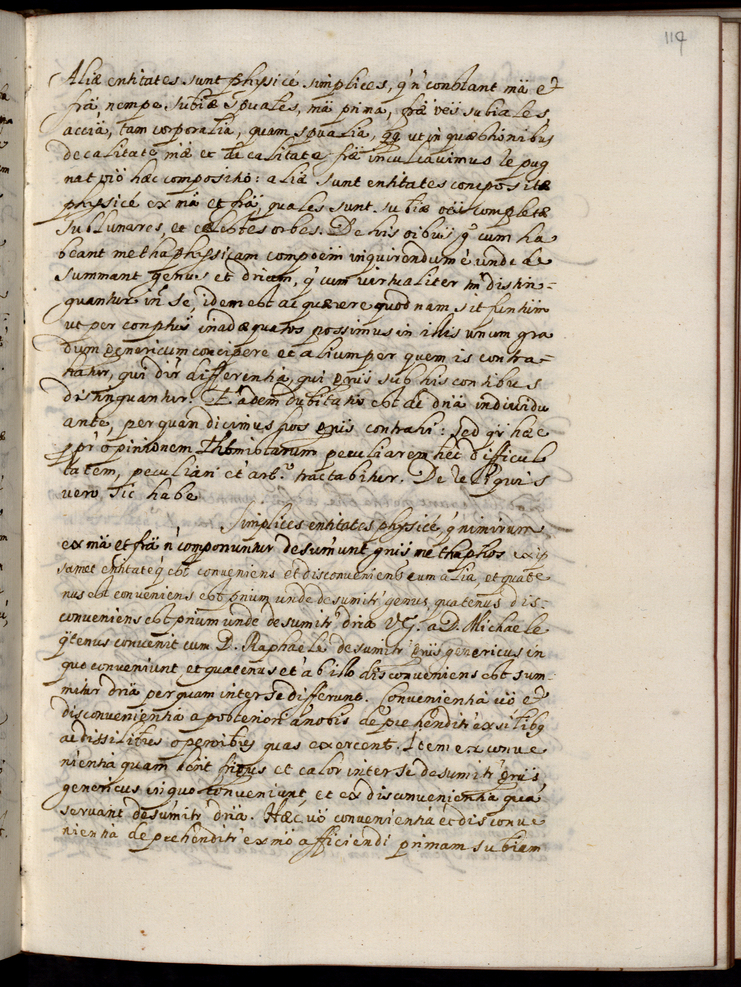 119
Aliæ entitates sunt physicé simplices, q' n' constant mã et
frã nempe. subtiæ spuales, mã prima, frã vëis subiales,
acciã, tam corporalia, quam spualia, qq ut in quæsthionibus
de calitate mæ et de calitate frã inculcavimus repug
nat viö hæc compositio: aliæ sunt entitates compositæ
physicé ex mã et frã, quales sunt subtiæ oës completæ
sublunares, et cælestes orbes. De his oibus q' cum ha
beant methaphysicam compoëm inquirendum é unde de
summant genus et driam, q' cum virtualiter distin=
guantur in se, idem est ac quærere quod nam sit funtim
ut per conptus inadæquatos possimus in illis unum gra
dum genericum concipere et alium per quem is contra=
hatur, qui dir differentia, qui gniis sub his contibus
distinguantur. Eadem dubitatio est de driã individu
ante, per quan dicimus nos gniis contrahi: sed qr hæc
ppr opinionem Thomistarum peculiarem het difficul
tatem, peculiari et art.º tractabitur. De reliquis
vero sic habe
Simplices entitates physicé, q' nimirum
ex mã et frã n' componuntur desumunt gniis methaphos ex ip
samet entitate q' est conveniens et disconveniens cum alia, et quate
nus est conveniens est pnium unde desumitr genus, quatenus dis=
conveniens est pnium unde desumitr driã VG. a D. Michaele
q'tenus convenit cum D. Raphaele desumitr gniis genericus in
quo conveniunt et quatenus et ab illo disconveniens est sum=
mitur driã per quam inter se differunt. Convenientiã vö et
disconvenientia a posteriori ánobis deprehenditr ex silibg
ac dissilibus operibus quas exercent. Item ex conve
nientia quam hënt frigus et calor inter se desumitr gniis
genericus in quo conveniunt et ex disconvenientia quã
servant desumitr driã. Hæc vö convenientia et disconve
nientia deprehenditr ex mö afficiendi primam subiam